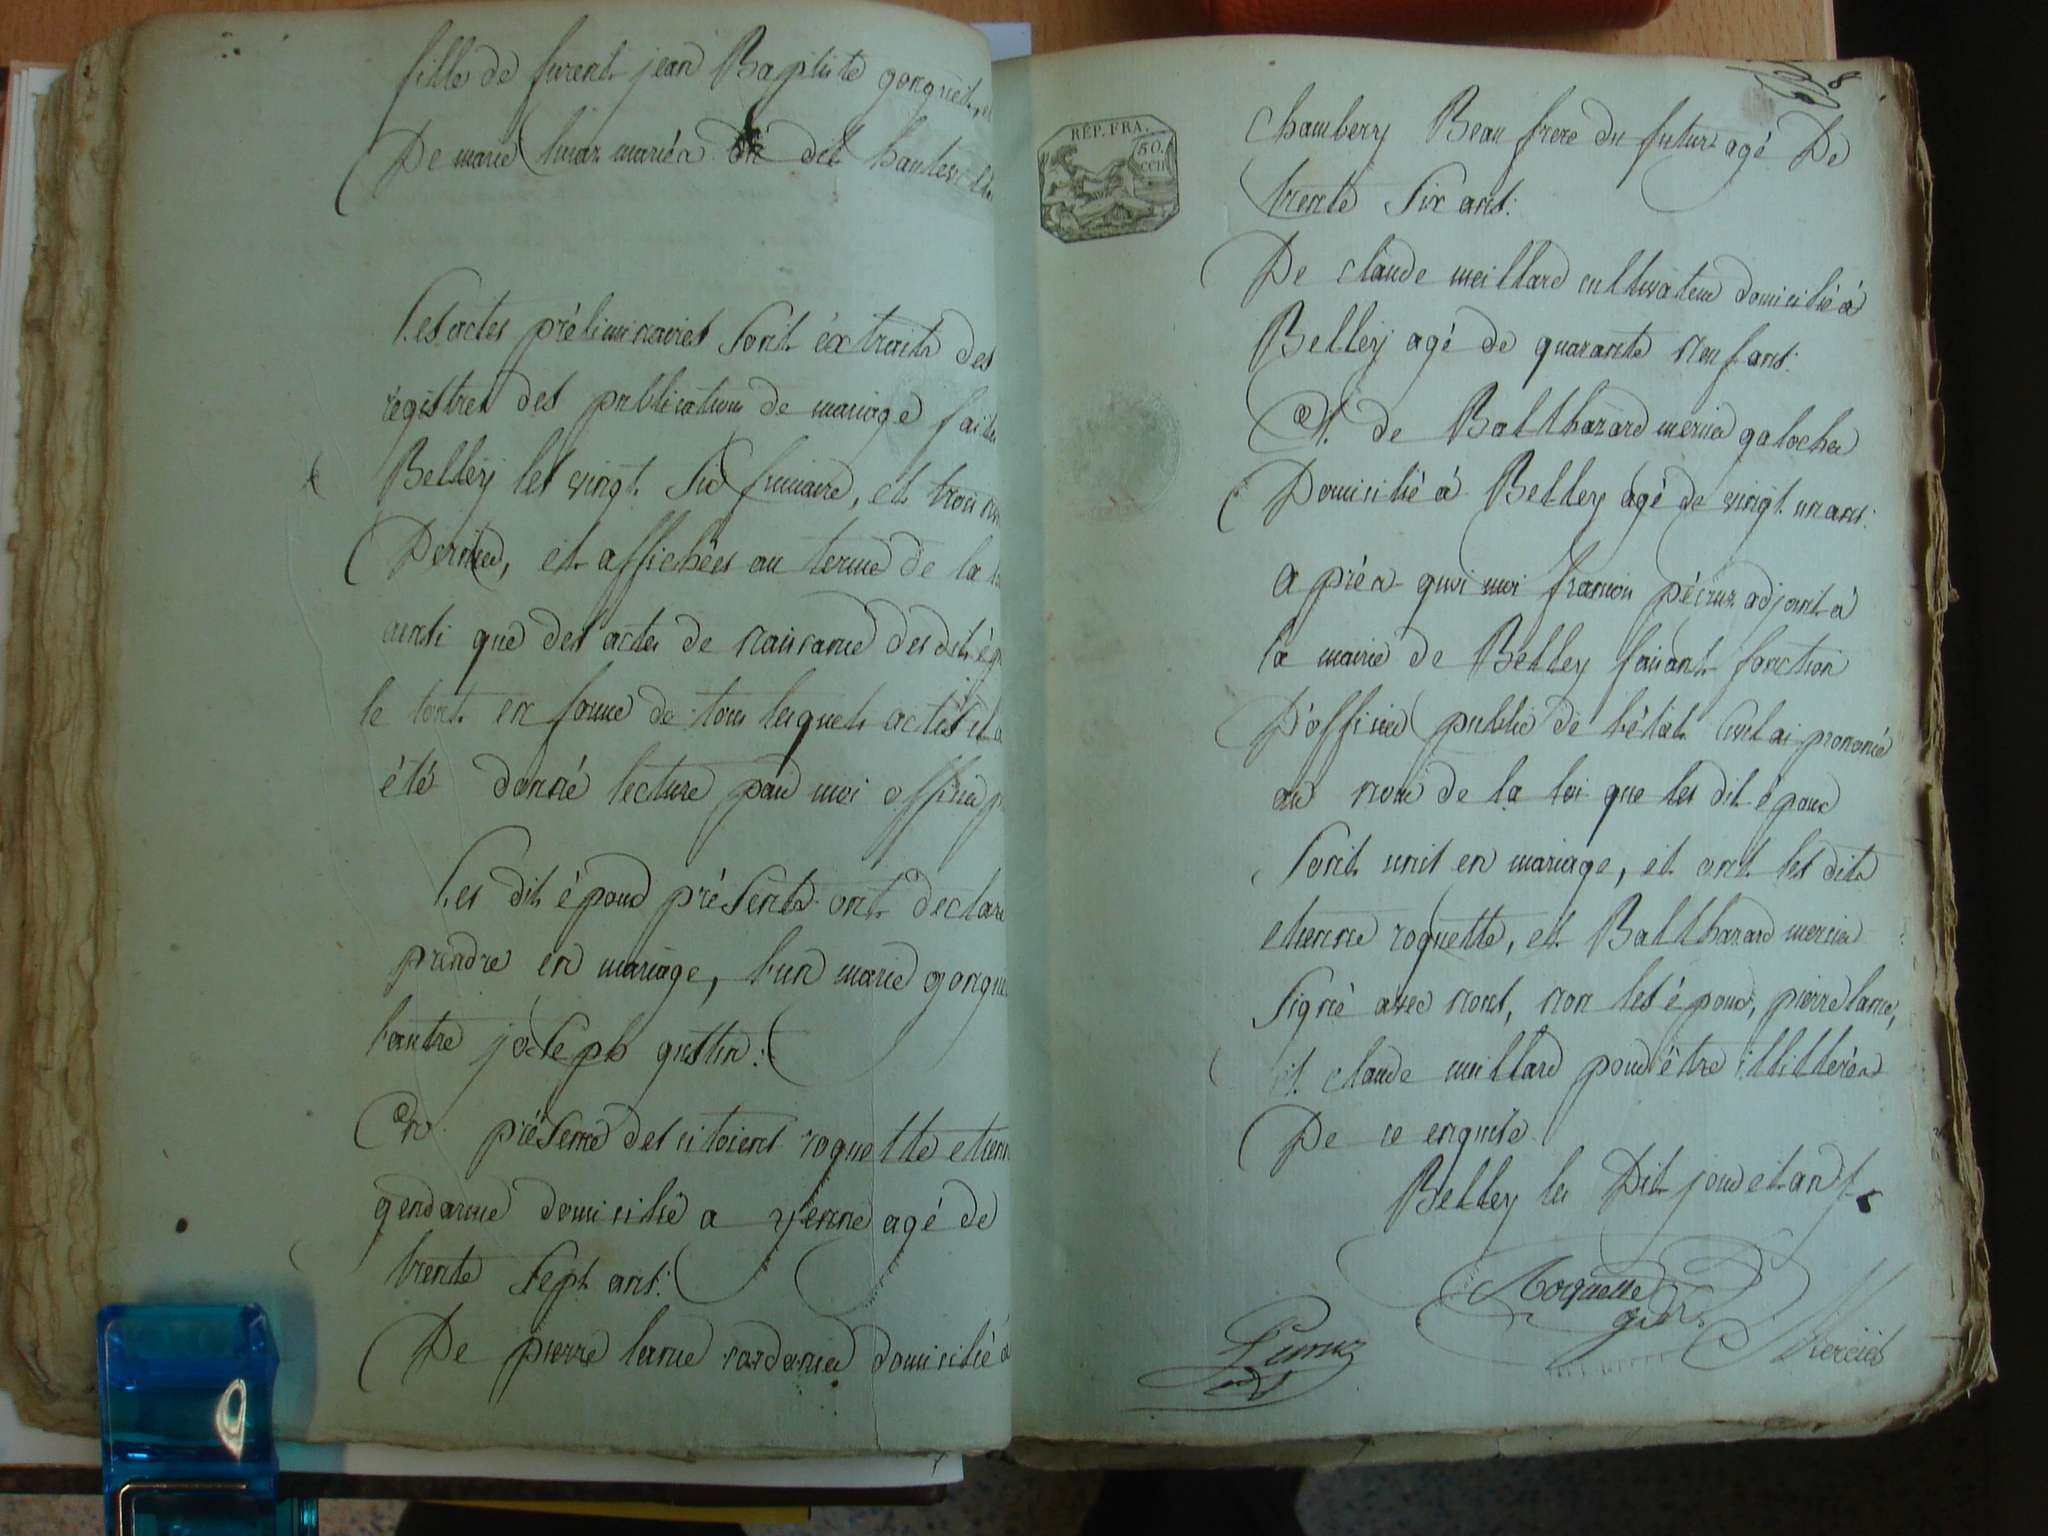 fille de furent jean Baptiste gonguet, et
De marie mariés dit hauteville
Les actes préliminaires sont éxtraits des
régistres des publications de mariage faites
Bellej les vingt six frimaire, et trois
Dernier, et affichées au terme de la
ainsi que des actes de naissance des dit ép
le tout en forme de tous lesquels actes il a
été donné lecture par moi officier p
Les dit époux présents ont déclaré
prendre en mariage, l'un marie gongue
l'autre joseph guttin:
En présence des citoiens roquette etienn
gendarme domicilié a yenne agé de
trente sept ans:
De pierre larue domicilié à
8
REP. FRA.
50.
CEN
Chambery Beau frere du futur agé De
trente six ans:
De claude meillard cultivateur domicilié à
Belley agé de quarante neuf ans:
Et. de Balthazard mercier galocher
Domicilié à Belley agé de vingt un ans:
après quoi moi françois péruz adjoint à
la mairie de Belley faisant fonction
D'officier public de l'état civil ai prononcé
au nom de la loi que les dit époux
sont unit en mariage, et ont les dits
etienne roquette, et Balthazard mercier
signé avec nous, non les époux, pierre larue,
et claude meillard pour être illitterés
De ce enquis
Belley les Dit jour et an
Roquette
Mercier